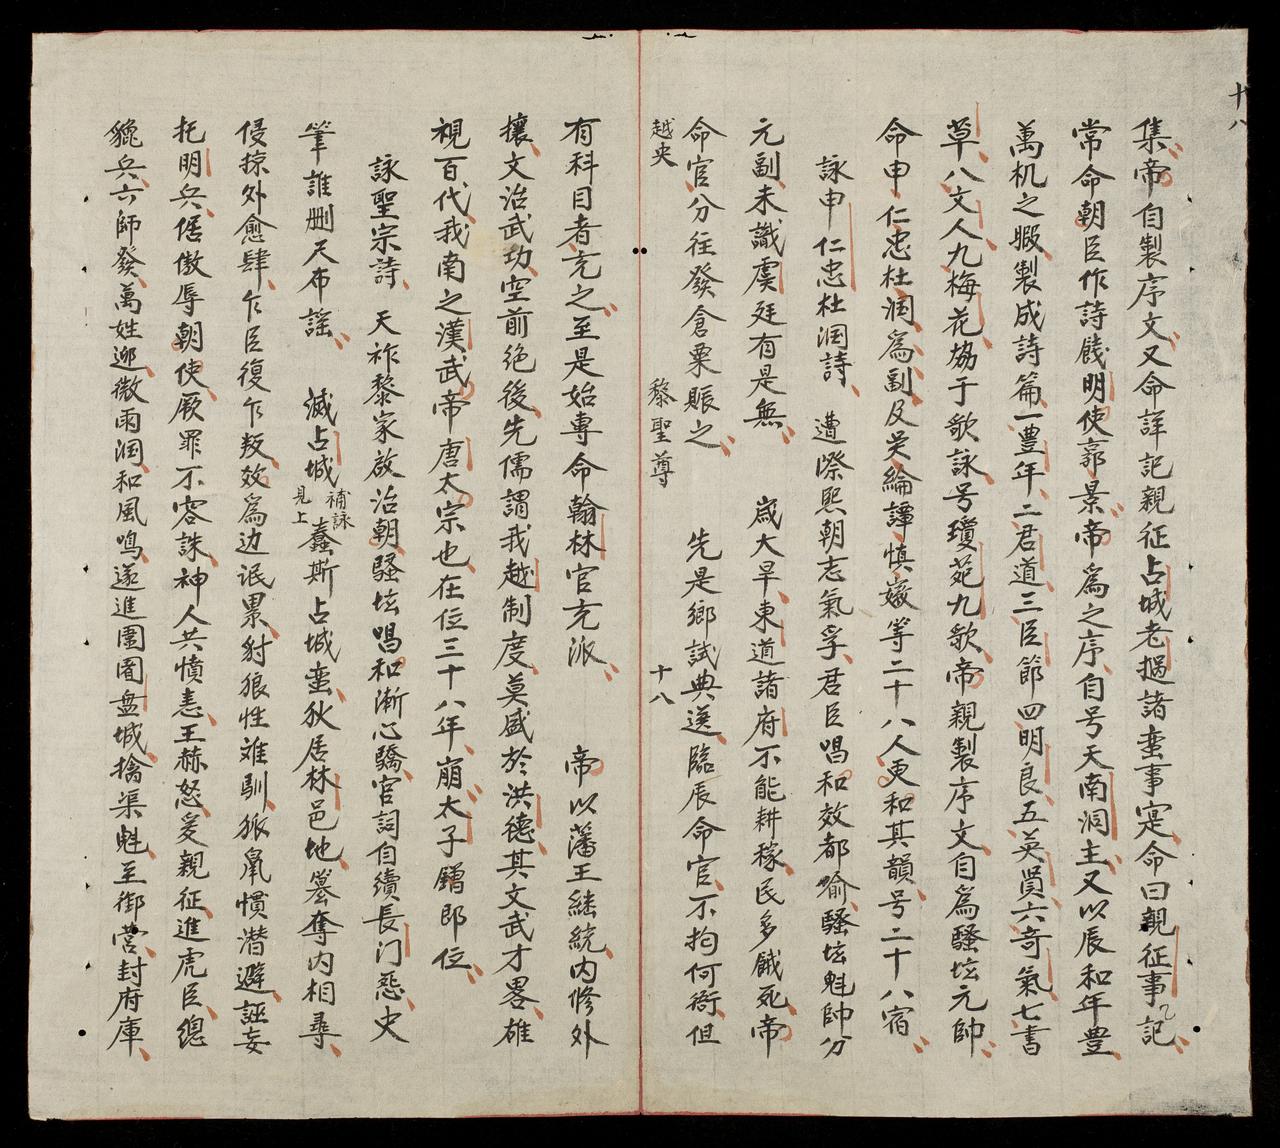 十八
集帝自製序文又命詳記親征占城老撾諸蛮事寔命曰親征事記
常命朝臣作詩餞明使郭景帝爲之序自号天南洞主又以辰和年豊
萬机之暇製成詩篇一豊年二君道三臣節四明良五英賢六奇氣七書
草八文人九梅花恊于歌詠号瓊苑九歌帝親製序文自爲騷坛元帥
命申仁忠杜润爲副及吴綸譚慎嶶等二十八人更和其韻号二十八宿
詠申仁忠杜润詩 遭際熙朝志氣孚君臣唱和效都喻騷坛魁帥分
元副未識虞廷有是無 歲大旱東道諸府不能耕稼民多餓死帝
命官分往發倉粟賑之 先是鄉試典送臨辰命官不拘何衙但
越史 黎聖尊 十八
有科目者充之至是始專命翰林官充派 帝以藩王継統内修外
攘文治武功空前绝後先儒謂我越制度莫盛於洪德其文武才畧雄
視百代我南之漢武帝唐太宗也在位三十八年崩太子鏳即位
詠聖宗詩 天祚黎家啟治朝騷坛唱和漸心驕官詞自續長门怨史
筆誰删尺布謡 滅占城 補詠見上 蠢斯占城蛮狄居林邑地簒奪内相尋
侵掠外愈肆乍臣復乍叛效爲边氓累豺狼性难馴狐鼠慣潛避誕妄
托明兵倨傲辱朝使厥罪不容誅神人共憤恚王赫怒爰親征進虎臣總
貔兵六師發萬姓迎微雨润和風鳴遂進圍阇盘城擒渠魁至御营封府庫